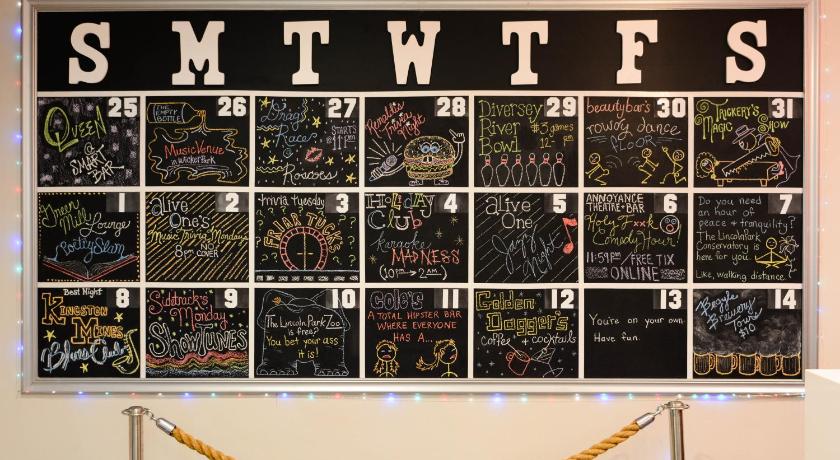 S M T W T F S
25
Queen
@
SMART
BAR
26
THE
EMPTY
BOTTLE
Music Venue
in Wicker Park
27
Drag
Race
STARTS
@
Roscoe's
28
Trivia
Night
29
Diversey
River
Bowl
$3 games
12-
30
beautybar's
rowdy dance
FLOOR
31
TRICKERY'S
MAGIC SHOW
1
Green
Mill
Lounge
Poetry Slam
2
alive
One's
Music Trivia Mondays
8pm NO
COVER
3
trivia tuesday
FRIAR TUCKS
4
HOLiDAY
CLUb
Karaoke
MADNESS
(10pm → 2am)
5
alive
One
Jazz
Night
6
ANNOYANCE
THEATRE+BAR
Holy F*xk
Comedy Hour!
11:59PM FREE TIX
ONLINE
7
Do you need
an hour of
peace + tranquility?
The Lincoln Park
Conservatory is
here for you.
Like, walking distance.
8
Best Night
KINGSTON
MINES
Blues Club
9
Sidetrack's
Monday
SHOWTUNES
10
The Lincoln Park Zoo
is free?
You bet your ass
it is!
11
Cole's
A TOTAL HIPSTER BAR
WHERE EVERYONE
HAS A...
12
Golden
Dagger's
coffee + cocktails
13
You're on your own.
Have fun.
14
Begyle
Brewery
Tours
$10